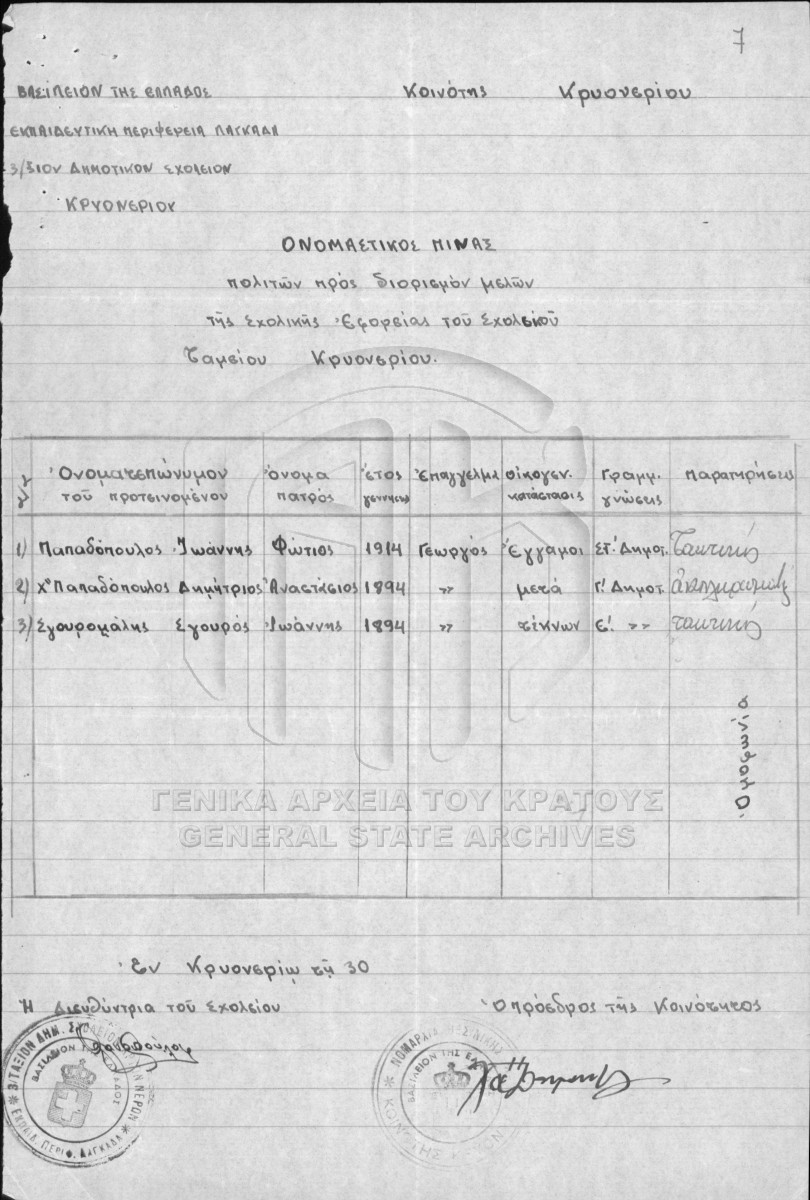 7
ΒΑΣΙΛΕΙΟΝ ΤΗΣ ΕΛΛΑΔΟΣ
Κοινότης Κρυονερίου
ΕΚΠΑΙΔΕΥΤΙΚΗ ΠΕΡΙΦΕΡΕΙΑ ΛΑΓΚΑΔΑ
3/ΞΙΟΝ ΔΗΜΟΤΙΚΟΝ ΣΧΟΛΕΙΟΝ
ΚΡΥΟΝΕΡΙΟΥ
ΟΝΟΜΑΣΤΙΚΟΣ ΠΙΝΑΞ
πολιτῶν πρός διορισμόν μελῶν
τῆς Σχολικῆς Ἐφορείας τοῦ Σχολικοῦ
Ταμείου Κρυονερίου.
Ὀνοματεπώνυμον τοῦ προτεινομένου | Ὄνομα πατρός | Ἔτος γεννήσεως | Ἐπάγγελμα | Οἰκογεν. κατάστασις | Γραμμ. γνώσεις | Παρατηρήσεις
1) Παπαδόπουλος Ἰωάννης | Φώτιος | 1914 | Γεωργός | Ἔγγαμοι | ΣΤ! Δημοτ. | Τακτικός
2) Χ" Παπαδόπουλος Δημήτριος | Ἀναστάσιος | 1894 | » | μετά | Γ! Δημοτ.
3) Σγουρομάλης Σγουρός | Ἰωάννης | 1894 | » | τέκνων | Ε! » » | τακτικός
Ὁμοφωνία
ΓΕΝΙΚΑ ΑΡΧΕΙΑ ΤΟΥ ΚΡΑΤΟΥΣ
GENERAL STATE ARCHIVES
Ἐν Κρυονερίῳ τῇ 30
Ἡ Διευθύντρια τοῦ Σχολείου
Ὁ πρόεδρος τῆς Κοινότητος
3/ΤΑΞΙΟΝ ΔΗΜ. ΣΧΟΛΕΙΟ
ΒΑΣΙΛΕΙΟΝ ΤΗΣ ΕΛΛΑΔΟΣ
ΕΚΠΑΙΔ. ΠΕΡΙΦ. ΛΑΓΚΑΔΑ
ΝΟΜΑΡΧΙΑ
ΒΑΣΙΛΕΙΟΝ ΤΗΣ